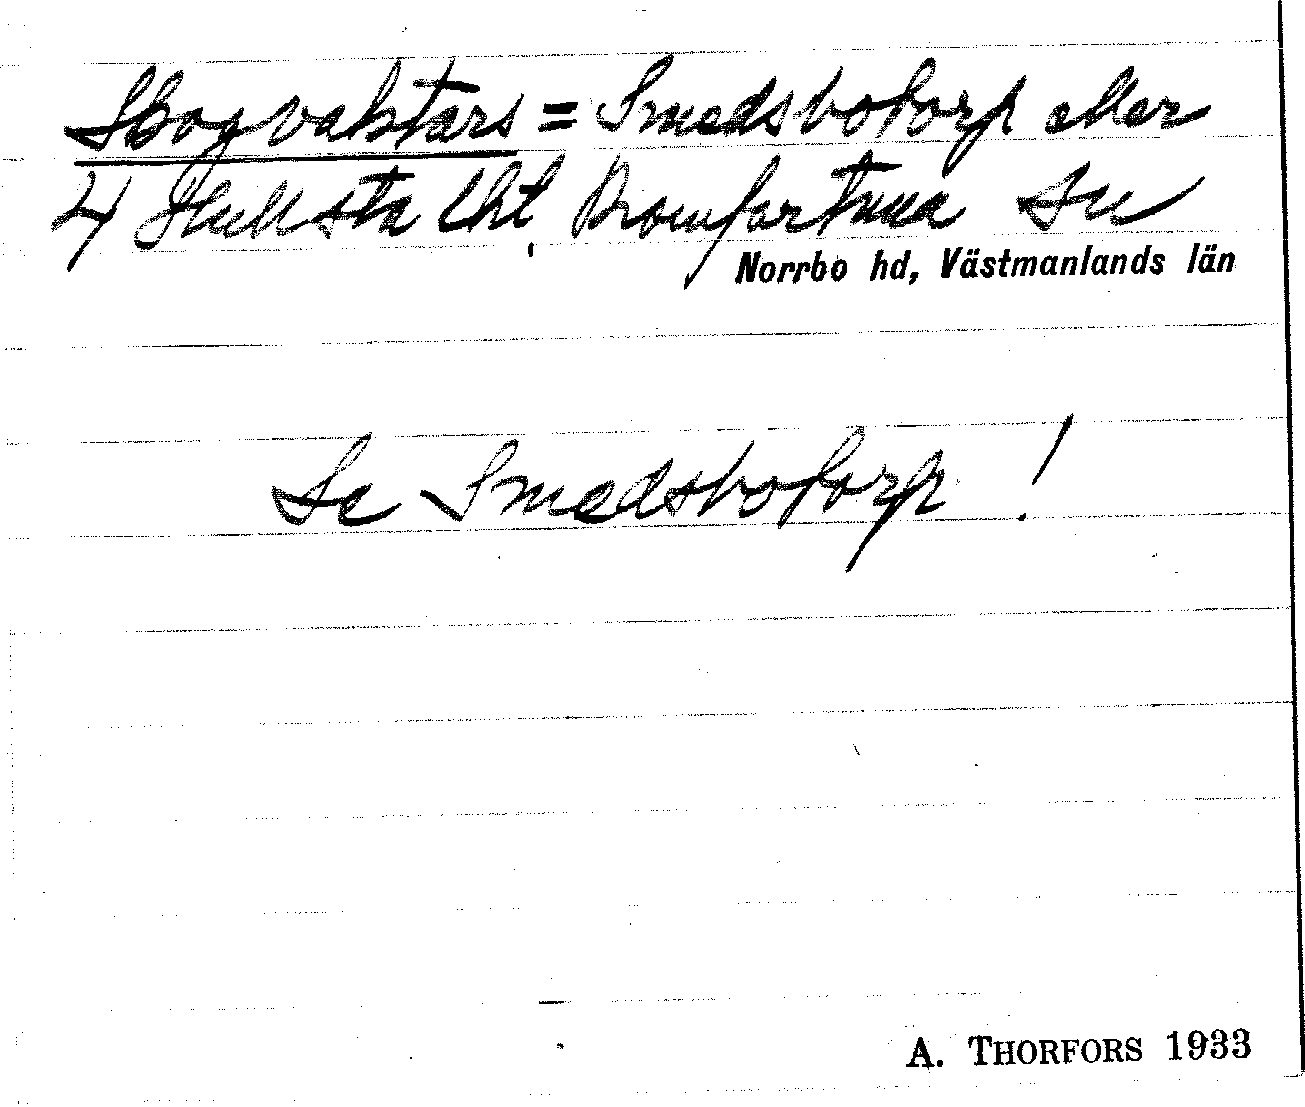 Skogvaktars = Smedsbotorp eller
4 Hullsta lht, Romfartuna sn
Norrbo hd, Västmanlands län
Se Smedsbotorp!
A. THORFORS 1933